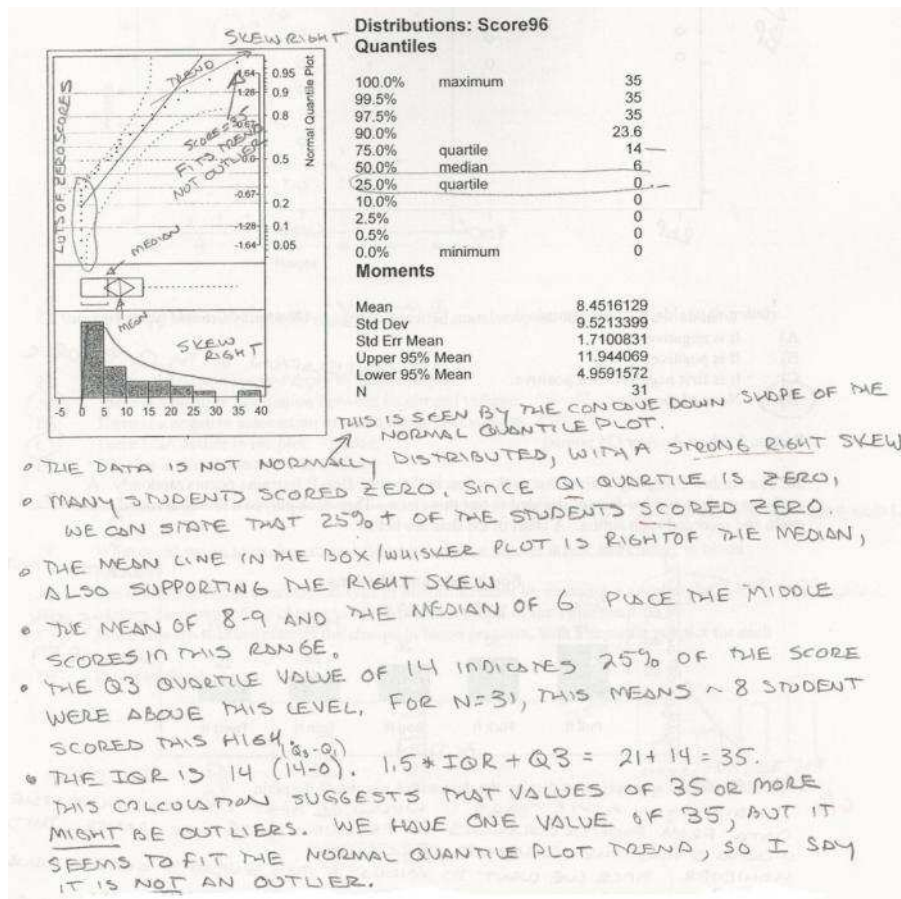 SKEW RIGHT
Distributions: Score96
Quantiles
LOTS OF ZERO SCORES
TREND
SCORE=35
FITS TREND
NOT OUTLIER
1.64
1.28
0.67
0.0
-0.67
-1.28
-1.64
0.95
0.9
0.8
0.5
0.2
0.1
0.05
Normal Quantile Plot
MEDIAN
MEAN
SKEW
RIGHT
-5 0 5 10 15 20 25 30 35 40
100.0% maximum 35
99.5% 35
97.5% 35
90.0% 23.6
75.0% quartile 14
50.0% median 6
25.0% quartile 0
10.0% 0
2.5% 0
0.5% 0
0.0% minimum 0
Moments
Mean 8.4516129
Std Dev 9.5213399
Std Err Mean 1.7100831
Upper 95% Mean 11.944069
Lower 95% Mean 4.9591572
N 31
THIS IS SEEN BY THE CONCAVE DOWN SHAPE OF THE
NORMAL QUANTILE PLOT.
• THE DATA IS NOT NORMALLY DISTRIBUTED, WITH A STRONG RIGHT SKEW
• MANY STUDENTS SCORED ZERO. SINCE Q1 QUARTILE IS ZERO,
WE CAN STATE THAT 25%+ OF THE STUDENTS SCORED ZERO.
• THE MEAN LINE IN THE BOX/WHISKER PLOT IS RIGHT OF THE MEDIAN,
ALSO SUPPORTING THE RIGHT SKEW
• THE MEAN OF 8-9 AND THE MEDIAN OF 6 PLACE THE MIDDLE
SCORES IN THIS RANGE.
• THE Q3 QUARTILE VALUE OF 14 INDICATES 25% OF THE SCORE
WERE ABOVE THIS LEVEL. FOR N=31, THIS MEANS ~ 8 STUDENT
SCORED THIS HIGH.
(Q3-Q1)
• THE IQR IS 14 (14-0). 1.5*IQR+Q3 = 21+14=35.
THIS CALCULATION SUGGESTS THAT VALUES OF 35 OR MORE
MIGHT BE OUTLIERS. WE HAVE ONE VALUE OF 35, BUT IT
SEEMS TO FIT THE NORMAL QUANTILE PLOT TREND, SO I SAY
IT IS NOT AN OUTLIER.